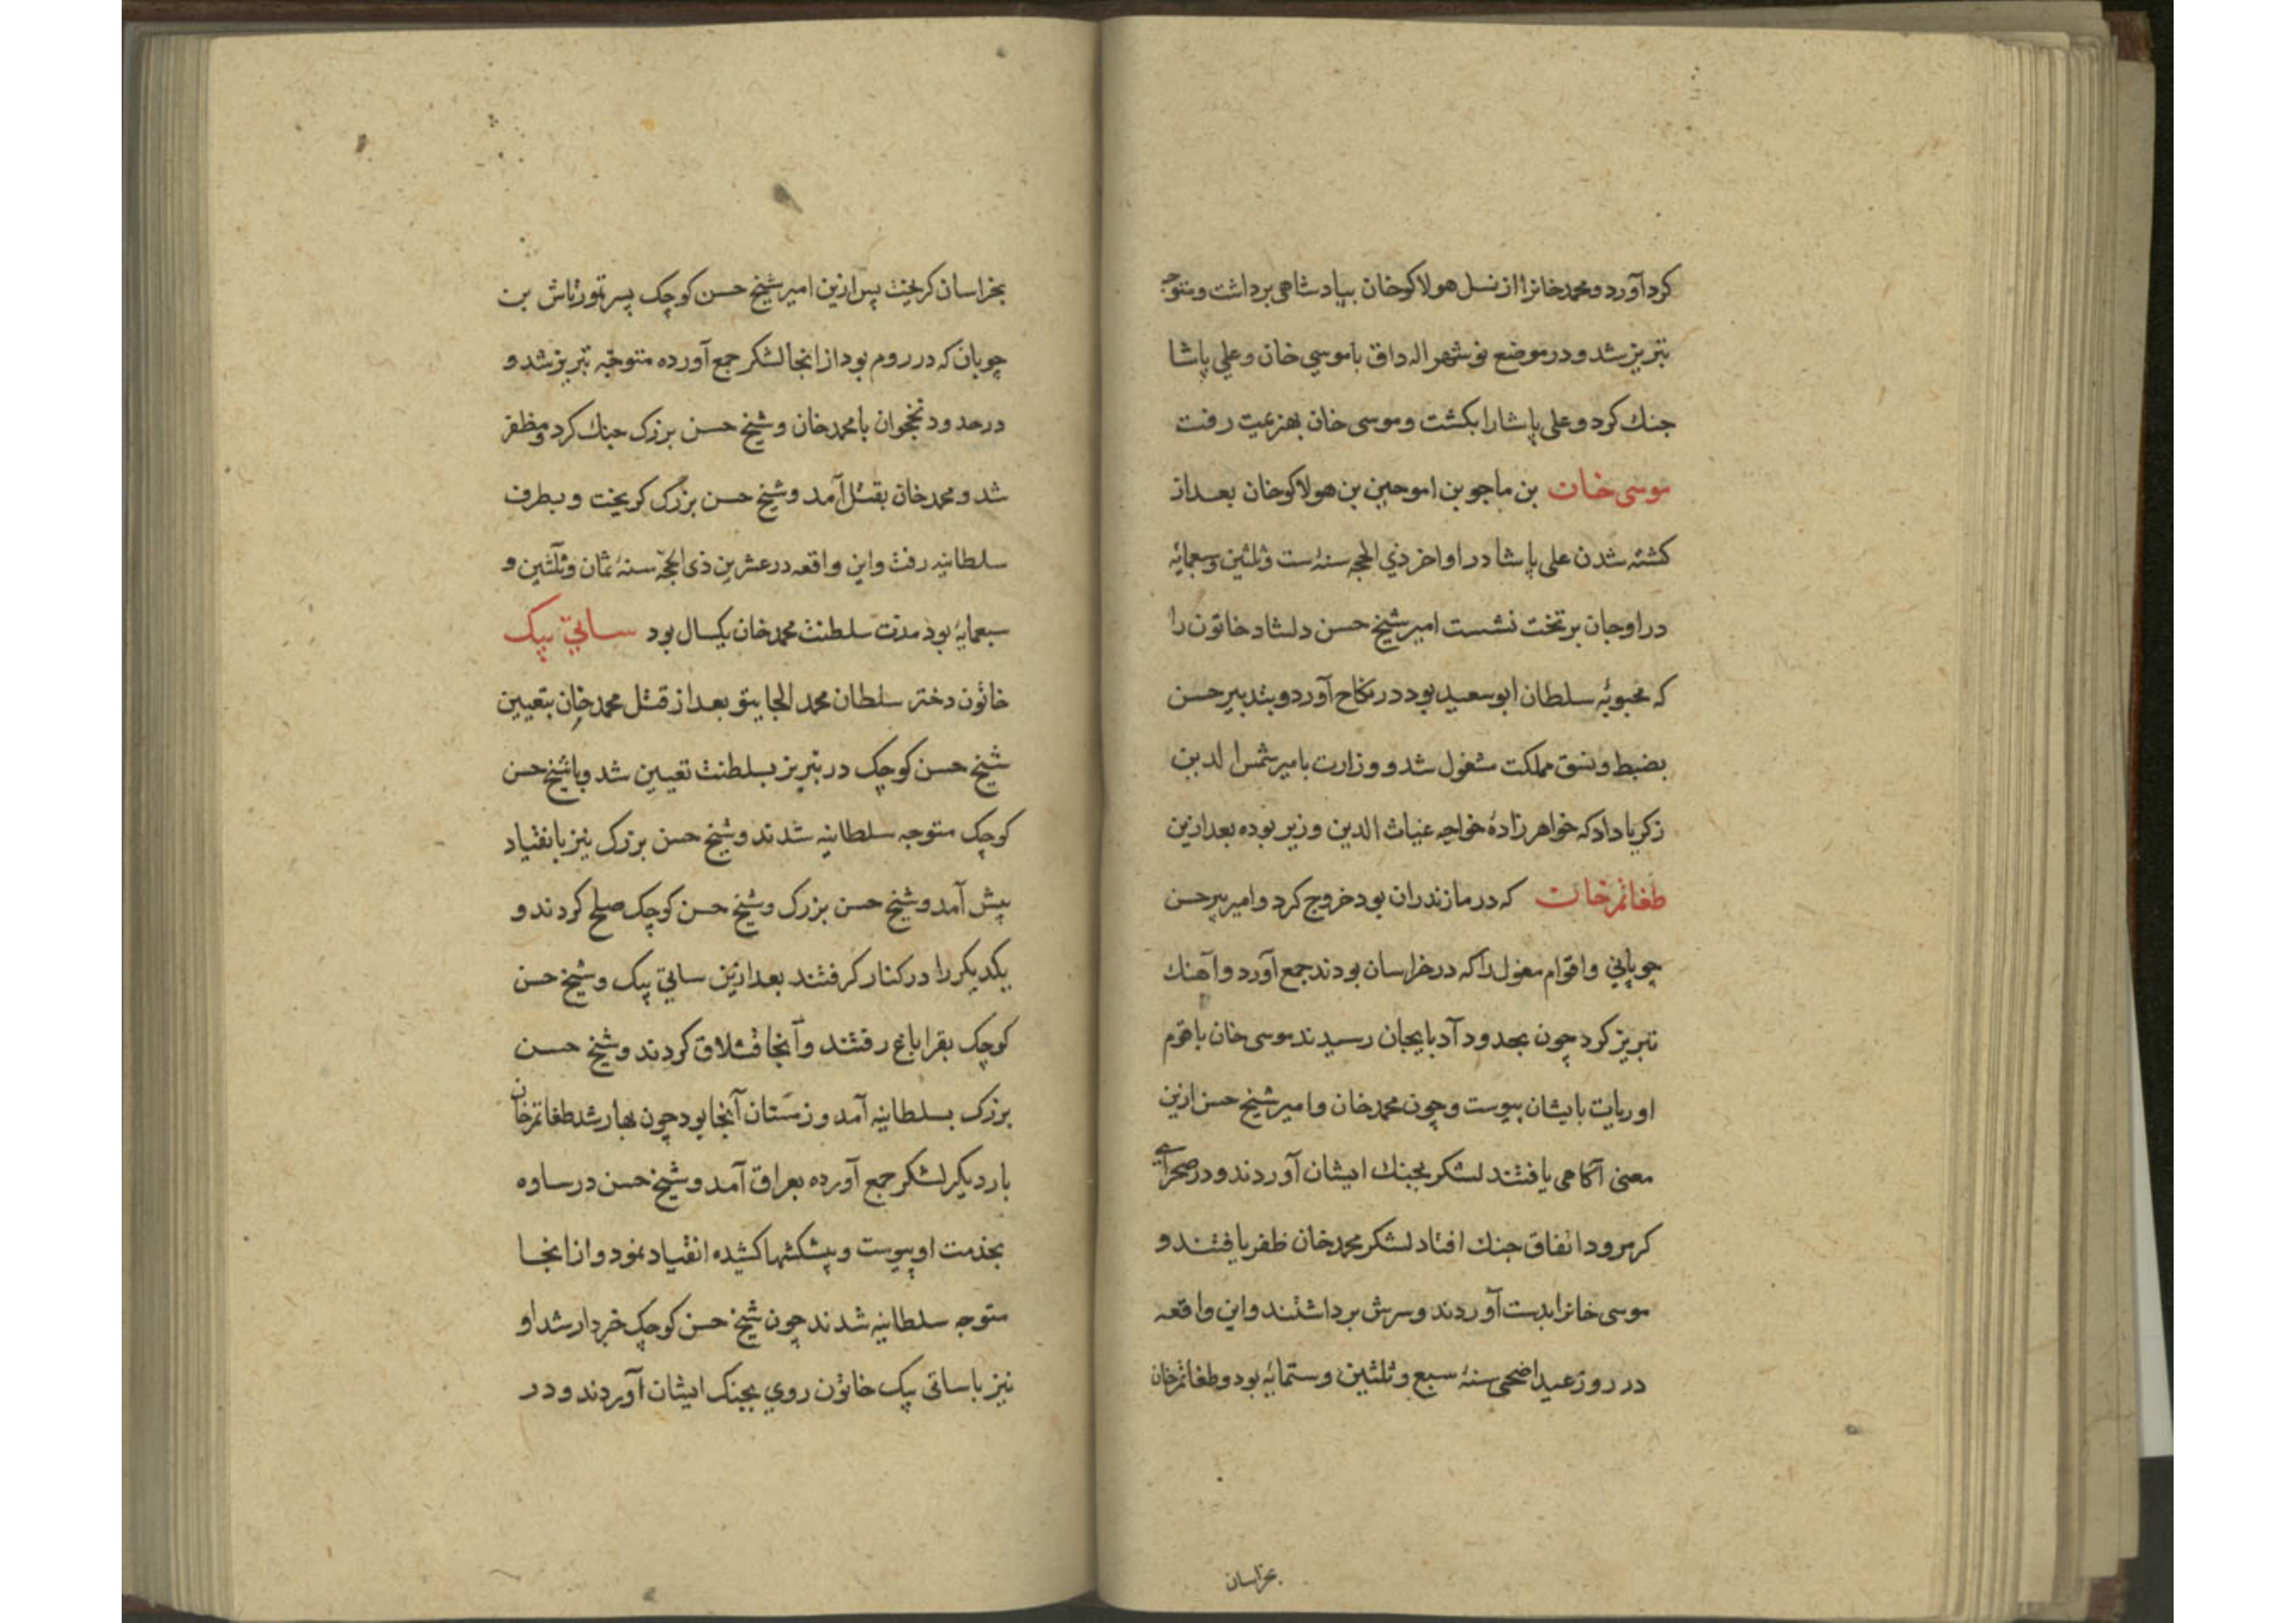 کرد آورد و محمد خانرا از نسل هولاکوخان بپادشاهی برداشت و متوجه
تبریز شد و در موضع نوشهر اله داق با موسی خان و علی پاشا
جنك کرد و علی پاشا را بکشت و موسی خان بهزیمت رفت
موسی خان بن ماجو بن اموجین بن هولاکوخان بعد از
کشته شدن علی پاشا در اواخر ذی الحجه سنهٔ ست و ثلثین و سبعمایه
در اوجان بر تخت نشست امیر شیخ حسن دلشاد خاتون را
که محبوبهٔ سلطان ابو سعید بود در نکاح آورد و بتدبیر حسن
بضبط و نسق مملکت مشغول شد و وزارت بامیر شمس الدین
زکریا داد که خواهر زادهٔ خواجه غیاث الدین وزیر بوده بعد ازین
طغاتمرخان که در مازندران بود خروج کرد و امیر پیر حسن
چوپانی و اقوام مغول را که در خراسان بودند جمع آورد و آهنك
تبریز کرد چون بحدود آدبایجان رسیدند موسی خان با قوم
اویرات بایشان پیوست و چون محمد خان و امیر شیخ حسن ازین
معنی آکاهی یافتند لشکر بجنك ایشان آوردند و در صحرای
کرمرود اتفاق جنك افتاد لشکر محمد خان ظفر یافتند و
موسی خانرا بدست آوردند و سرش برداشتند و این واقعه
در روز عید اضحی سنهٔ سبع و ثلثین و ستمایه بود و طغاتمرخان
بخراسان
بخراسان کریخت پس ازین امیر شیخ حسن کوچک پسر تمورتاش بن
چوپان که در روم بود از انجا لشکر جمع آورده متوجّه تبریز شد و
در حدود نخجوان با محمد خان و شیخ حسن بزرک جنك کرد و مظفر
شد و محمد خان بقتل آمد و شیخ حسن بزرک کریخت و بطرف
سلطانیه رفت و این واقعه در عشرین ذی الحجّه سنهٔ ثمان و ثلثین و
سبعمایهٔ بود مدت سلطنت محمد خان یکسال بود ساتی بیک
خاتون دختر سلطان محمد الجایتو بعد از قتل محمد خان بتعیین
شیخ حسن کوچک در تبریز بسلطنت تعیین شد و با شیخ حسن
کوچک متوجه سلطانیه شدند و شیخ حسن بزرک نیز بانقیاد
پیش آمد و شیخ حسن بزرک و شیخ حسن کوچک صلح کردند و
یکدیکر را در کنار کرفتند بعد ازین ساتی بیک و شیخ حسن
کوچک بقراباغ رفتند و آنجا قشلاق کردند و شیخ حسن
بزرک بسلطانیه آمد و زمستان آنجا بود چون بهار شد طغاتمرخان
بار دیکر لشکر جمع آورده بعراق آمد و شیخ حسن در ساوه
بخدمت او پیوست و پیشکشها کشیده انقیاد نمود و از انجا
متوجه سلطانیه شدند چون شیخ حسن کوچک خردار شد او
نیز با ساتی بیک خاتون روی بجنک ایشان آوردند و در